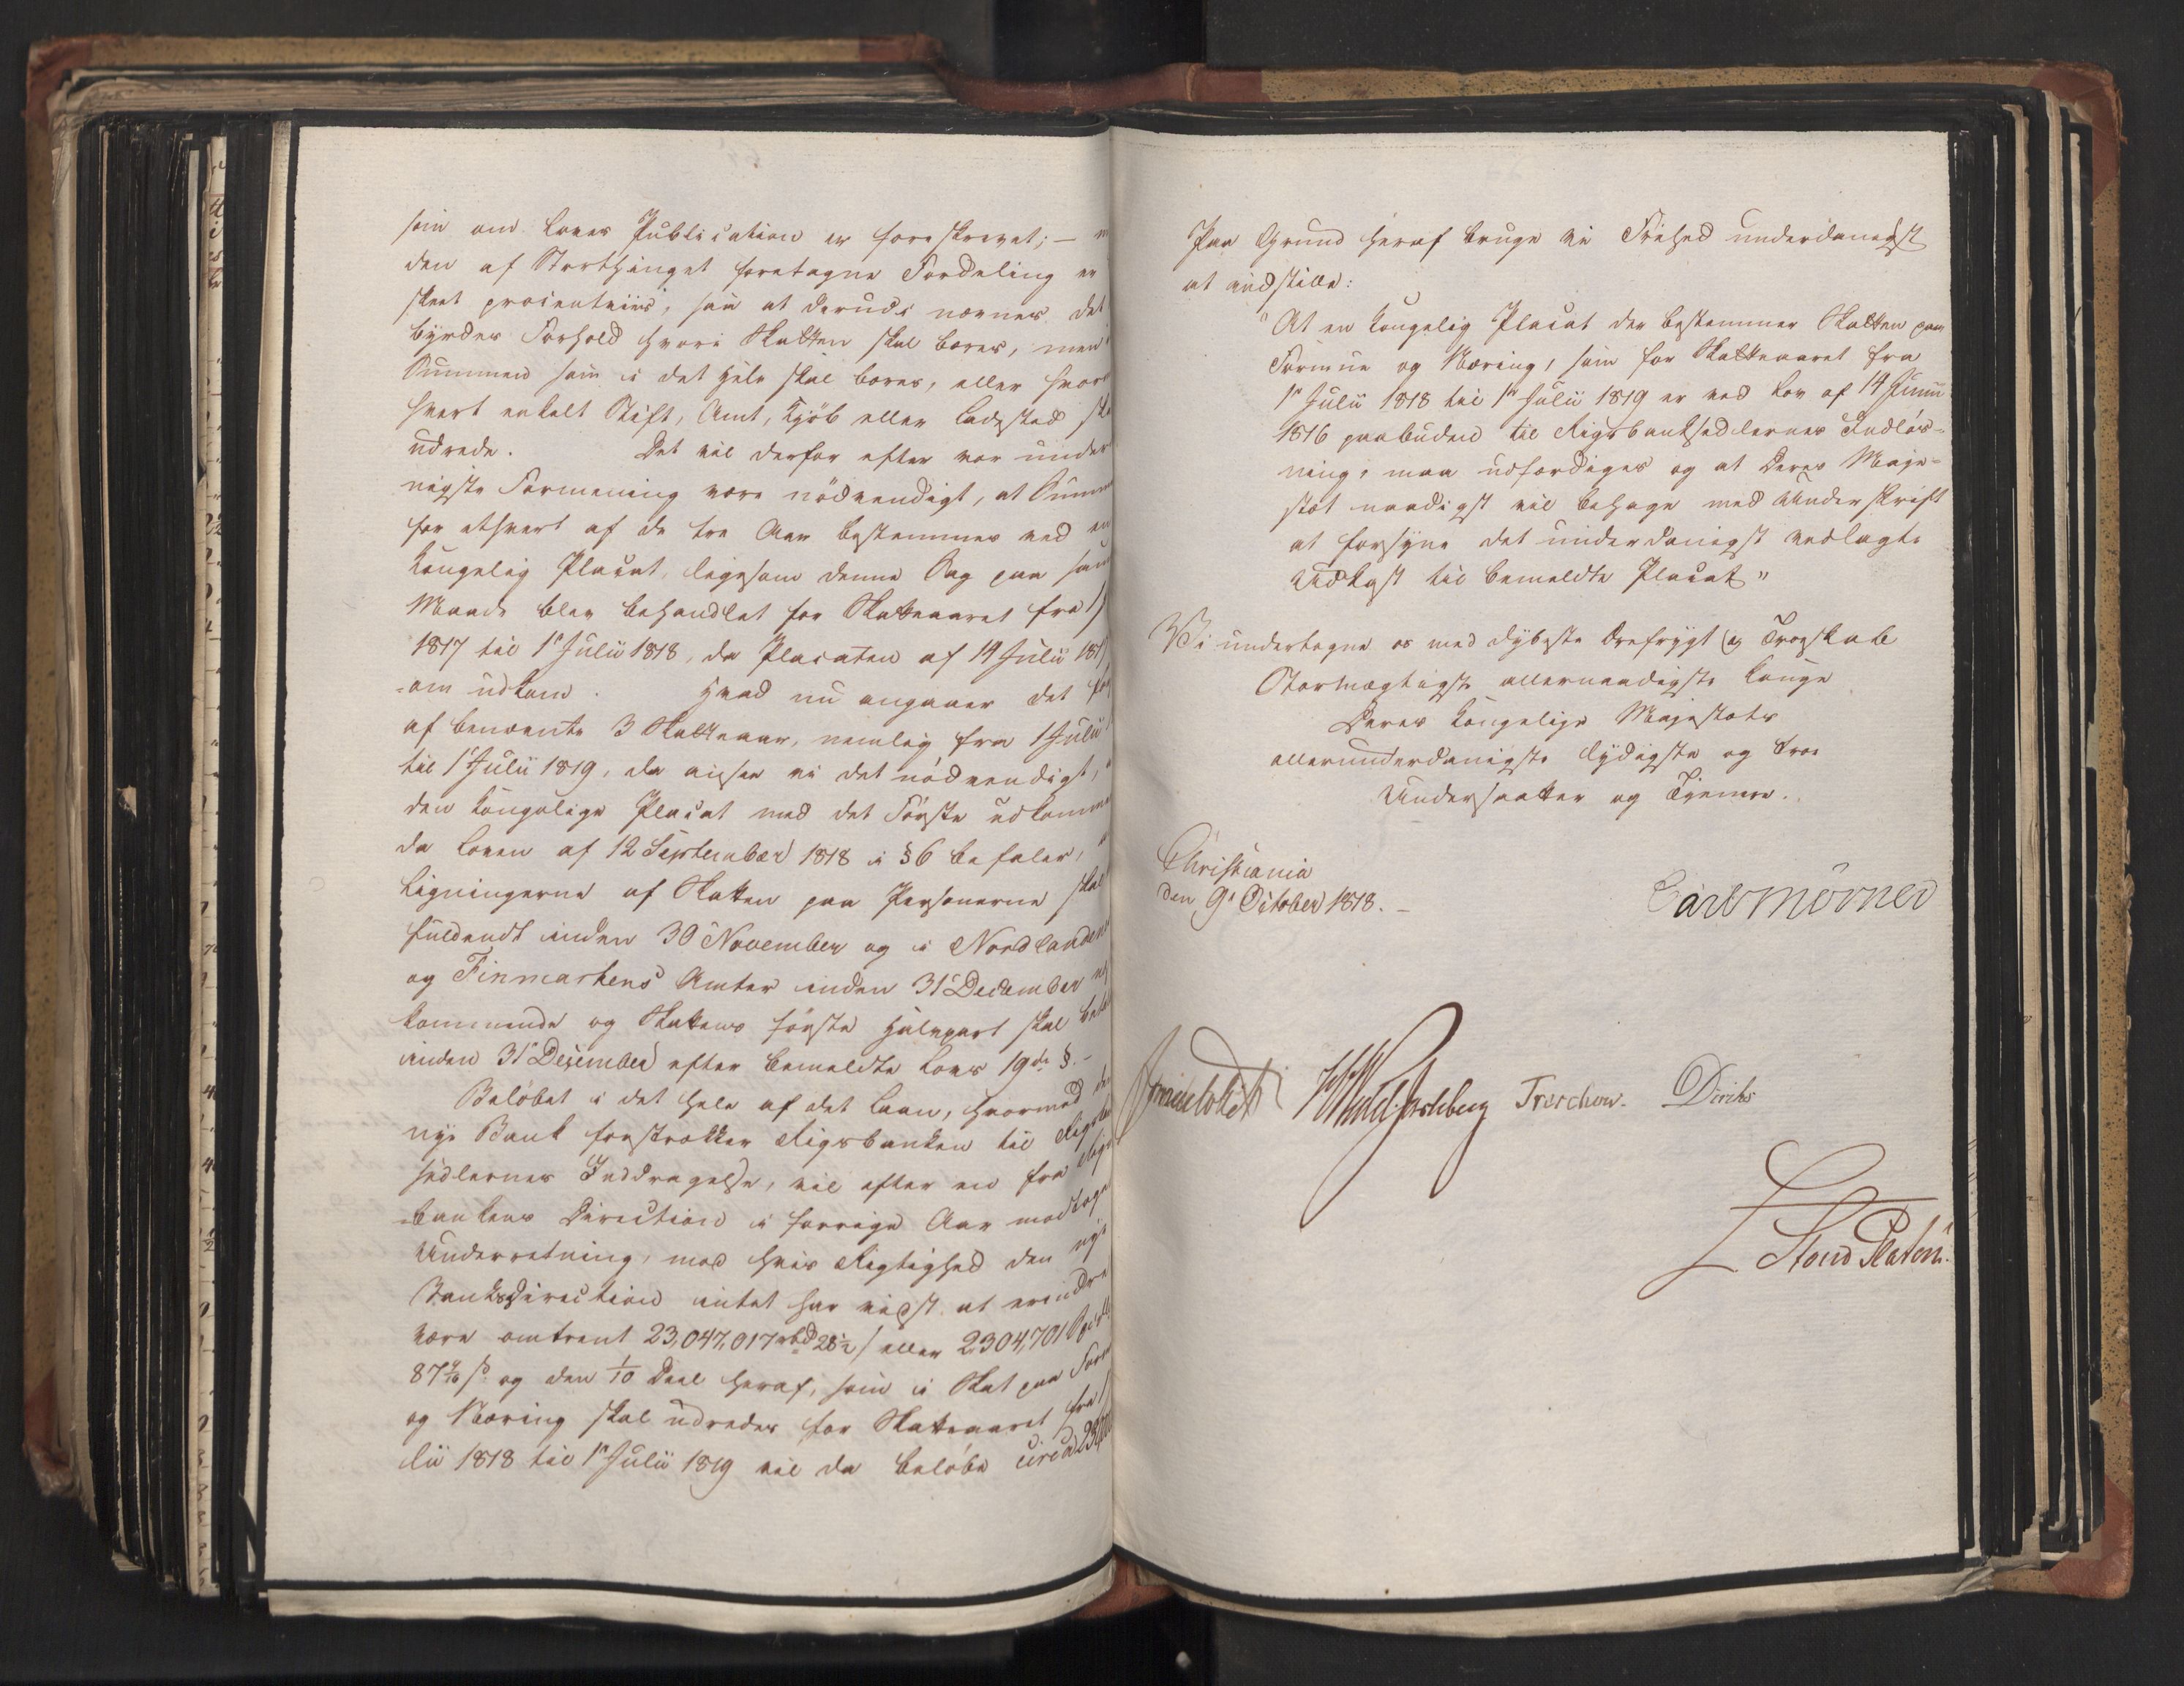 som om Loves Publication er foreskrevet; —
den af Storthinget foretagne Fordeling er
skeet procentviis, saa at derudi nævnes det
byrdes Forhold hvori Skatten skal bæres, men
Summen som i det Hele skal bæres, eller hvor
hvert enkelt Stift, Amt, Kjöb eller Ladested
udrede. Det vil derfor efter vor under
nigste Formening være nödvendigt, at Summ
for ethvert af de tre Aar bestemmes ved en
Kongelig Placat, ligesom denne Sag paa sam
Maade blev behandlet for Skatteaaret fra 1
1817 til 1e Julii 1818, da Placaten af 14 Julii 1817
-om udkom. Hvad nu angaaer det för
af benævnte 3 Skatteaar, nemlig fra 1 Julii
til 1 Julii 1819, da ansee vi det nödvendigt,
den Kongelige Placat med det Förste udkomme
da Loven af 12 September 1818 i § 6 befaler,
Ligningerne af Skatten paa Personerne skal
fuldendt inden 30 November og i Nordlandenes
og Finmarkens Amter inden 31 December
kommende og Skattens förste Halvpart skal
inden 31 December efter bemeldte Lovs 19de §.-
Belöbet i det hele af det Laan, hvormed den
nye Bank forstrækker Rigsbanken til Rigsbank
sedlernes Inddragelse, vil efter en fra Rigs
bankens Direction i forrige Aar modtagen
Underretning, mod hvis Rigtighed den nye
Banksdirection intet har vidst at erindre
være omtrent 23,047,017 rbd 28½ s eller 2,304,701
87 s og den 1/10 Deel heraf, som i Skat paa Form
og Næring skal udredes for Skatteaaret fra 1
lii 1818 til 1e Julii 1819 vil da belöbe circa
Paa Grund heraf bruge vi Friehed underdanigst
at indstille:
"At en Kongelig Placat der bestemmer Skatten paa
Formue og Næring, som for Skatteaaret fra
1e Julii 1818 til 1e Julii 1819 er ved Lov af 14 Junii
1816 paabuden til Rigsbanksedlernes Indlös-
ning, maa udfærdiges og at Deres Maje-
stæt naadigst vil behage med Underskrift
at forsyne det underdanigst vedlagte
Udkast til bemeldte Placat"
Vi undertegne os med dybeste Ærefrygt og Troeskab
Stormægtigste allernaadigste Konge
Deres Kongelige Majestæts
allerunderdanigste lydigste og troe
Undersaatter og Tjenere.
Christiania
den 9e October 1818. —
Carl Mörner
Treschow. Diriks
L. Stoud Platou.